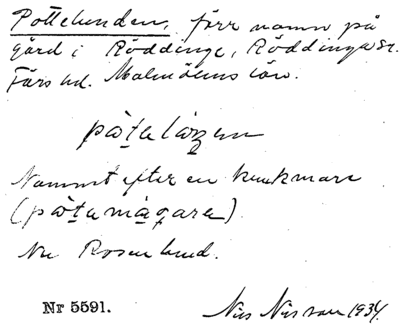 Pottelunden, förr namn på
gård i Röddinge, Röddinge sn.
Färs hd. Malmöhus län.
Namnt efter en krukmare
Nu Rosenlund.
Nr 5591. Nils Nilsson 1934.